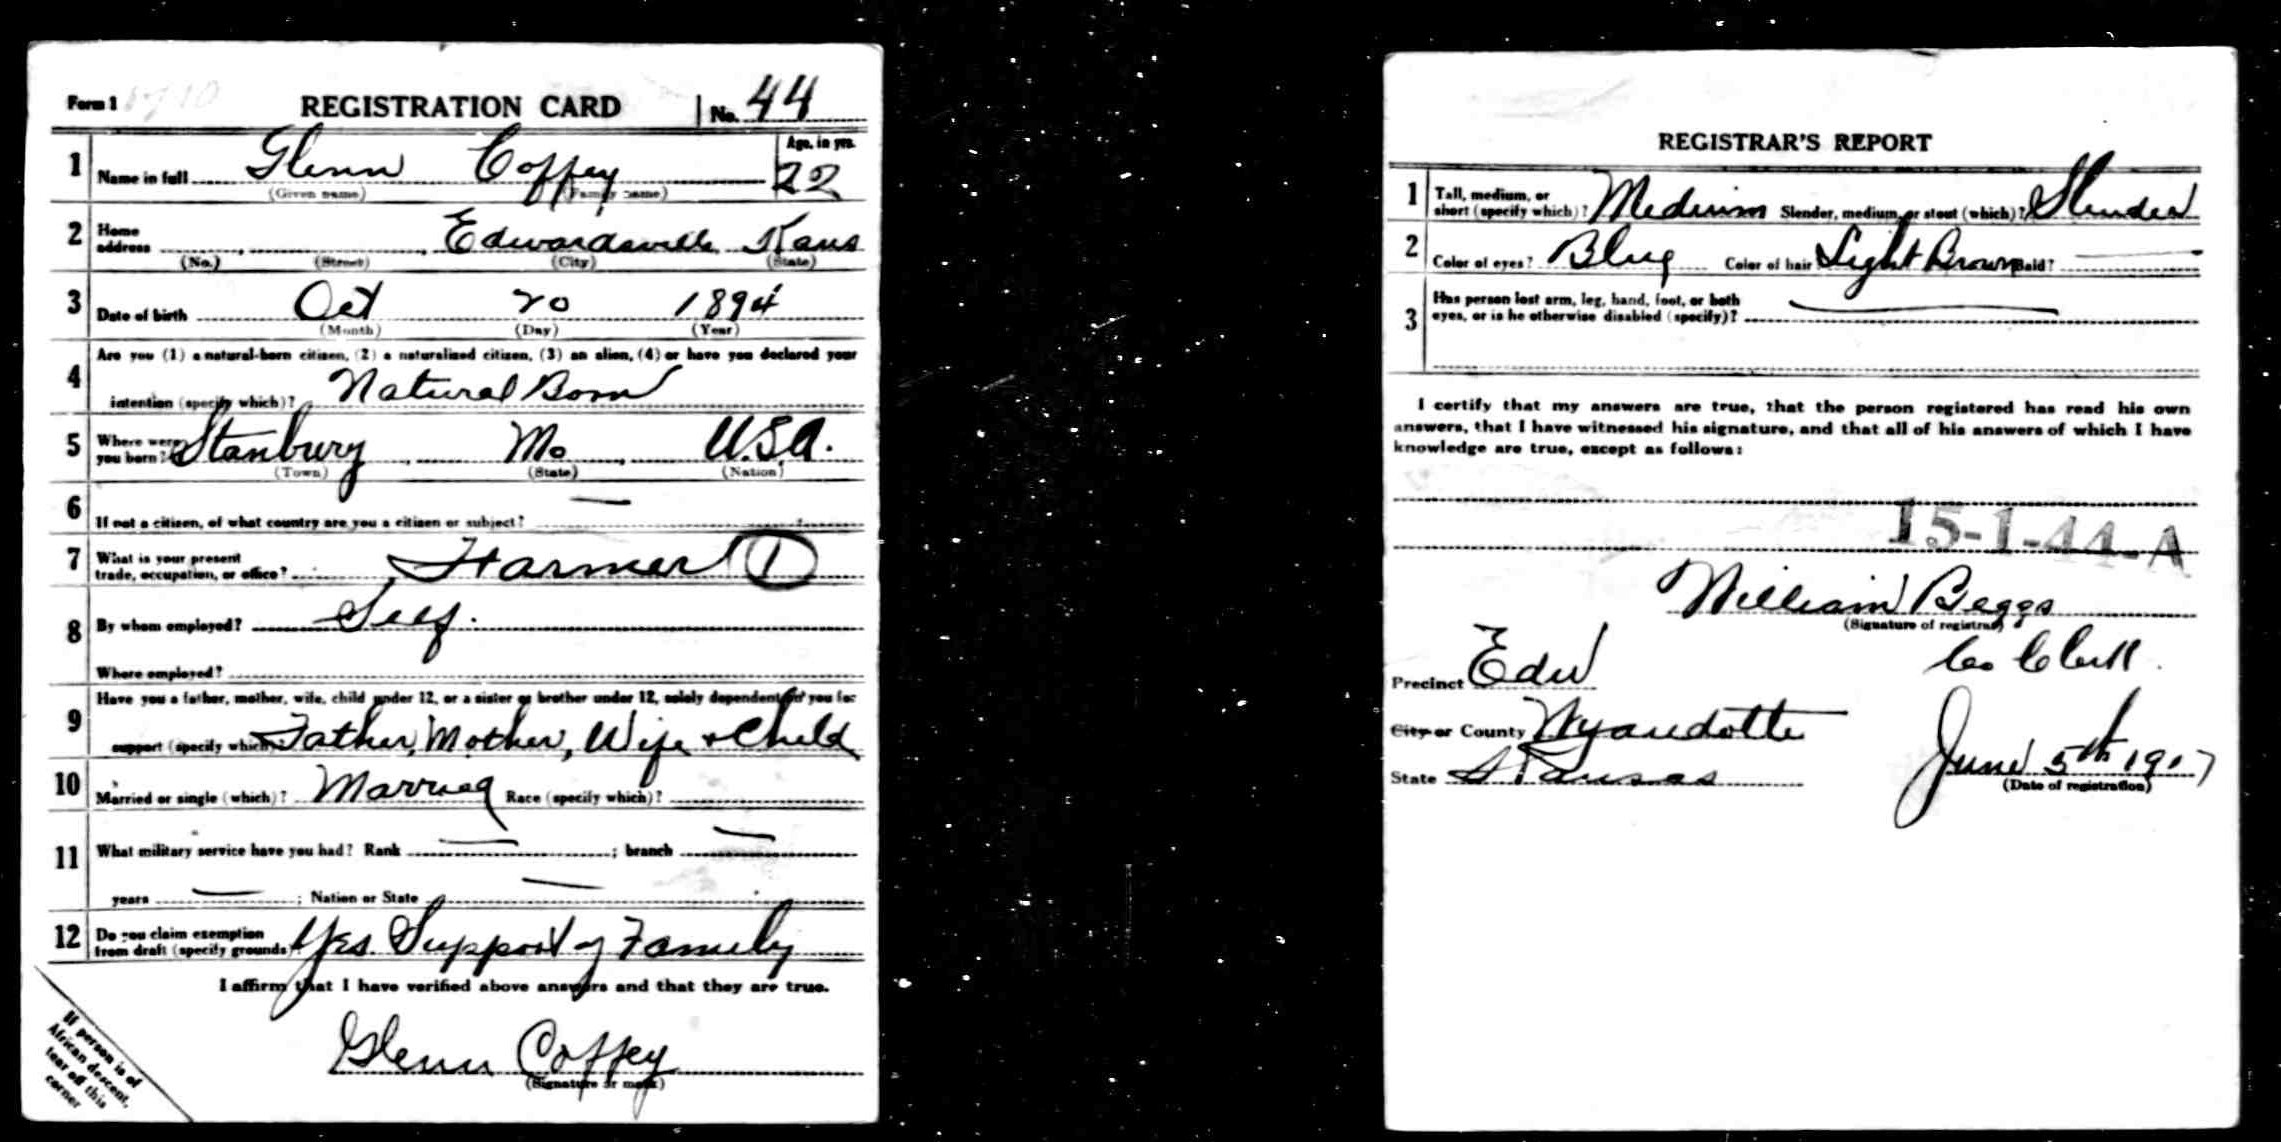 Form 1
REGISTRATION CARD
No. 44
1 Name in full Glenn Coffey
(Given name) (Family name)
Age, in yrs.
22
2 Home address Edwardsville Kans
(No.) (Street) (City) (State)
3 Date of birth Oct 20 1894
(Month) (Day) (Year)
4 Are you (1) a natural-born citizen, (2) a naturalized citizen, (3) an alien, (4) or have you declared your
intention (specify which)? Natural Born
5 Where were you born? Stanbury Mo U.S.A.
(Town) (State) (Nation)
6 If not a citizen, of what country are you a citizen or subject? —
7 What is your present trade, occupation, or office? Farmer 1
8 By whom employed? Self.
Where employed?
9 Have you a father, mother, wife, child under 12, or a sister or brother under 12, solely dependent on you for
support (specify which)? Father, Mother, Wife + Child
10 Married or single (which)? Married Race (specify which)?
11 What military service have you had? Rank — ; branch —
years — ; Nation or State —
12 Do you claim exemption from draft (specify grounds)? Yes. Support of Family
I affirm that I have verified above answers and that they are true.
Glenn Coffey
(Signature or mark)
If person is of
African descent,
tear off this
corner
REGISTRAR'S REPORT
1 Tall, medium, or short (specify which)? Medium Slender, medium, or stout (which)? Slender
2 Color of eyes? Blue Color of hair Light Brown Bald? —
3 Has person lost arm, leg, hand, foot, or both
eyes, or is he otherwise disabled (specify)? —
I certify that my answers are true, that the person registered has read his own
answers, that I have witnessed his signature, and that all of his answers of which I have
knowledge are true, except as follows:
15-1-44-A
William Beggs
(Signature of registrar)
Co Clerk.
Precinct Edw
City or County Wyandotte
State Kansas
June 5th 1917
(Date of registration)